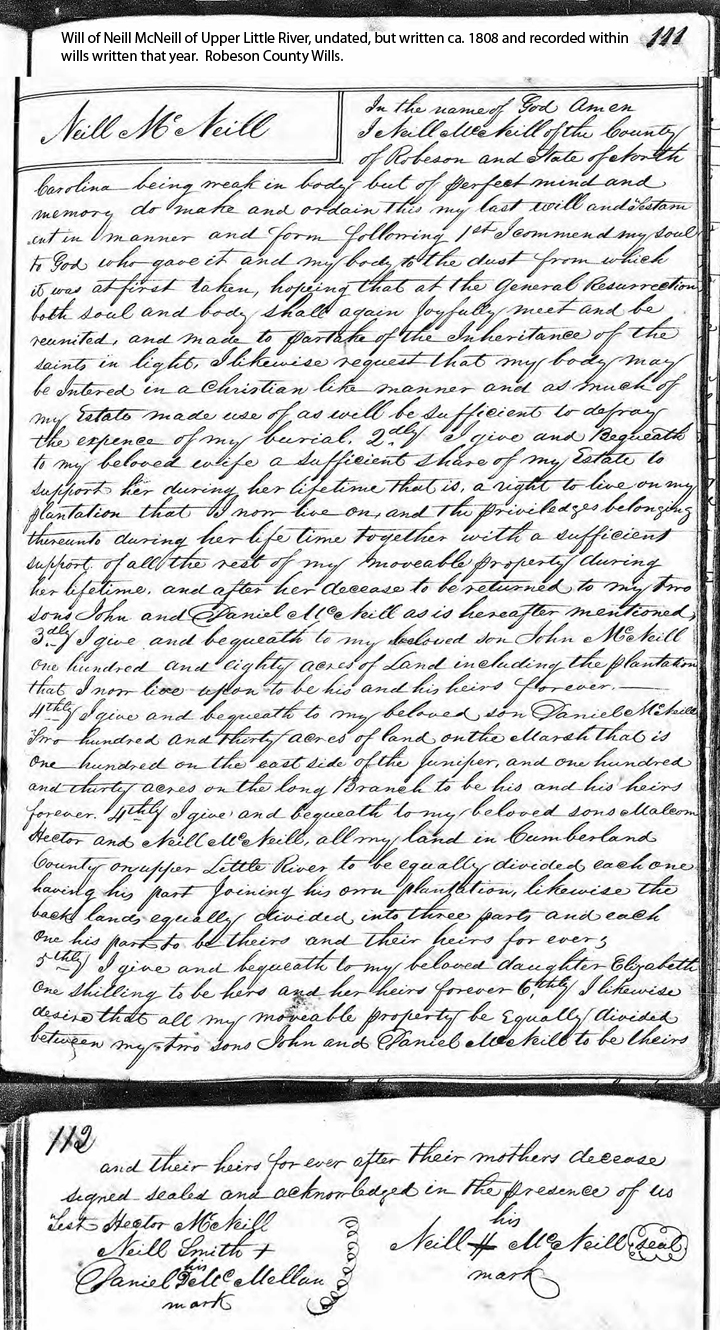 Will of Neill McNeill of Upper Little River, undated, but written ca. 1808 and recorded within
wills written that year. Robeson County Wills.
111
Neill McNeill
In the name of God Amen
I Neill McNeill of the County
of Robeson and State of North
Carolina being weak in body but of perfect mind and
memory do make and ordain this my last will and Testam
ent in manner and form following 1st I commend my soul
to God who gave it and my body to the dust from which
it was at first taken, hopeing that at the General Resurrection
both soul and body shall again Joyfully meet and be
reunited, and made to partake of the Inheritance of the
saints in light, I likewise request that my body may
be Intered in a Christian like manner and as much of
my Estate made use of as will be sufficient to defray
the expence of my burial. 2dly I give and Bequeath
to my beloved wife a sufficient share of my Estate to
support her during her lifetime that is, a right to live on my
plantation that I now live on, and the priviledges belonging
thereunto during her life time together with a sufficient
support of all the rest of my moveable property during
her lifetime. and after her decease to be returned to my two
sons John and Daniel McNeill as is hereafter mentioned,
3dly I give and bequeath to my beloved son John McNeill
one hundred and eighty acres of Land including the plantation
that I now live upon to be his and his heirs forever.
4thly I give and bequeath to my beloved son Daniel McNeill
Two hundred and thirty acres of land on the Marsh that is
one hundred on the east side of the Juniper, and one hundred
and thirty acres on the long Branch to be his and his heirs
forever. 4thly I give and bequeath to my beloved sons Malcom
Hector and Neill McNeill, all my land in Cumberland
County on upper Little River to be equally divided each one
having his part Joining his own plantation, likewise the
back lands equally divided into three parts and each
one his part to be theirs and their heirs for ever,
5thly I give and bequeath to my beloved daughter Elizabeth
one shilling to be hers and her heirs forever 6thly I likewise
desire that all my moveable property be Equally divided
between my two sons John and Daniel McNeill to be theirs
112
and their heirs for ever after their mothers decease
signed sealed and acknowledged in the presence of us
Test Hector McNeill
Neill Smith +
his
Daniel McMellan
mark
his
Neill H McNeill seal
mark